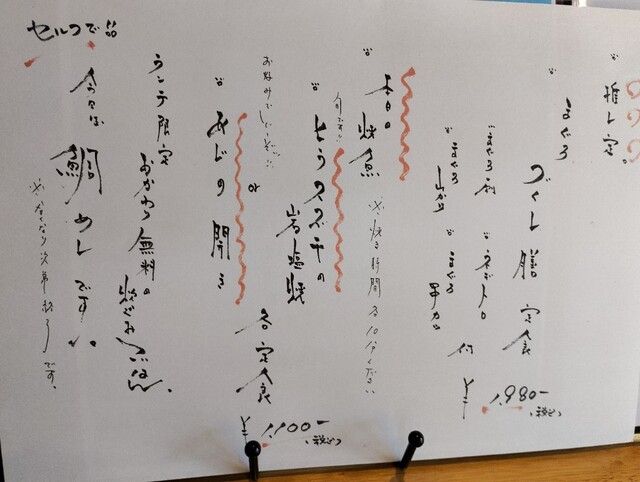 推し定。
まぐろ
づくし膳 定食
まぐろ
ネギトロ
まぐろ
山かけ
まぐろ
串カツ
付
¥1,980-
(税込)
本日の 焼魚
※焼き時間 20分ください
旬です
ヒラスズキの
岩塩焼
お好みでしぼって
or
あじの 開き
各定食
¥1,100-
(税込)
ランチ限定
おかわり無料の
炊き込みごはん、
セルフで
今日は 鯛めし です!!
※なくなり次第終了です。